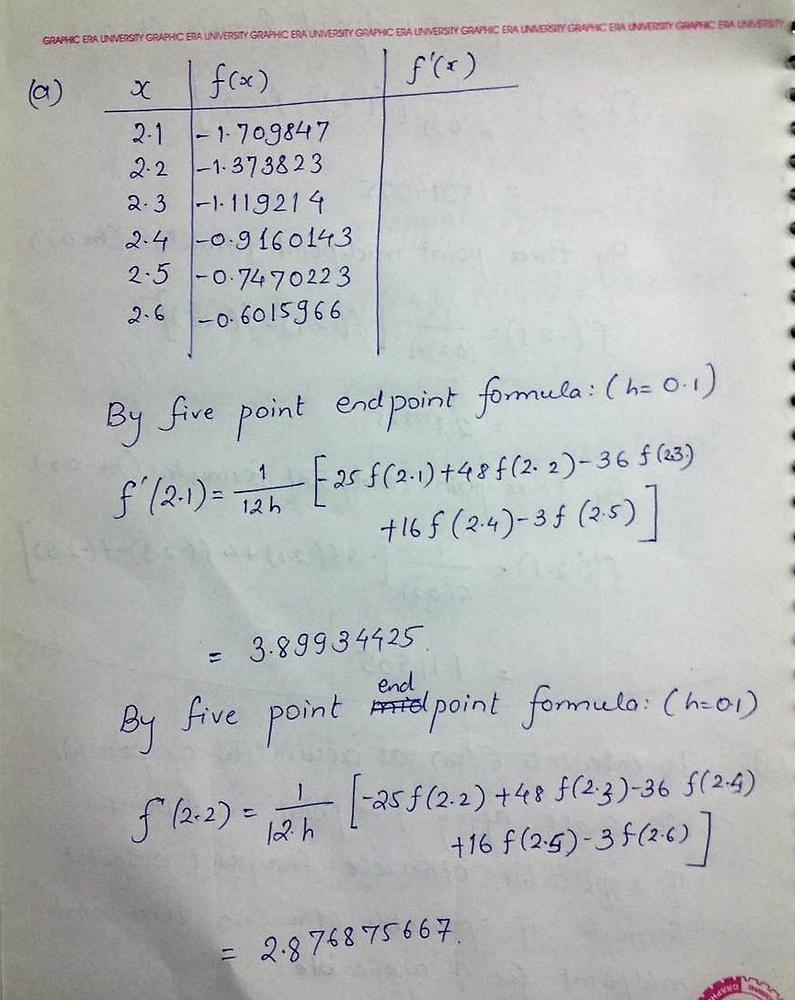 GRAPHIC ERA UNIVERSITY GRAPHIC ERA UNIVERSITY GRAPHIC ERA UNIVERSITY GRAPHIC ERA UNIVERSITY GRAPHIC ERA UNIVERSITY GRAPHIC ERA UNIVERSITY GRAPHIC ERA UNIVERSITY
(a) x f(x) f'(x)
2.1 -1.709847
2.2 -1.373823
2.3 -1.119214
2.4 -0.9160143
2.5 -0.7470223
2.6 -0.6015966
By five point endpoint formula: (h=0.1)
f'(2.1) = 1/12h [-25f(2.1)+48f(2.2)-36 f(2.3)
+16f(2.4)-3f(2.5)]
= 3.89934425
By five point end point formula: (h=0.1)
f'(2.2) = 1/12.h [-25f(2.2)+48 f(2.3)-36 f(2.4)
+16 f(2.5)-3f(2.6)]
= 2.876875667.